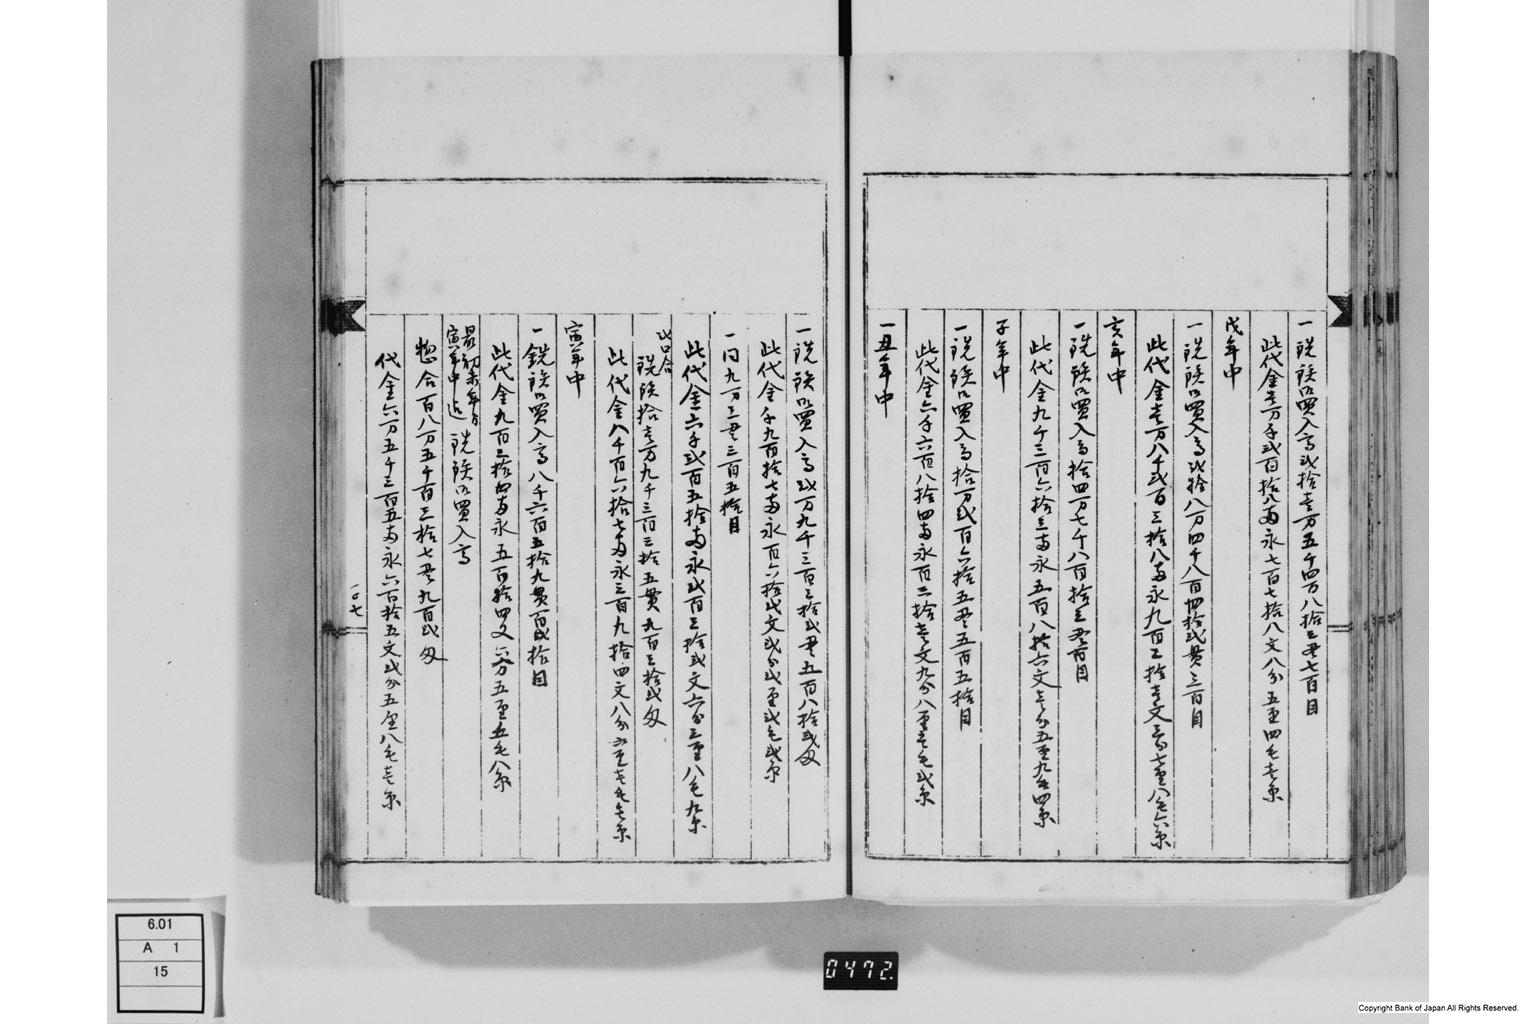 一銑鉄御買入高弐拾壱万五千四百八拾三貫七百目
此代金壱万千弐百拾八両永七百七拾八文八分五厘四毛壱糸
戌年中
一銑鉄御買入高弐拾八万四千八百四拾弐貫三百目
此代金壱万八千弐百三拾八両永九百三拾壱文三分七厘八毛六糸
亥年中
一銑鉄御買入高拾四万七千八百拾三貫百目
此代金九千三百六拾三両永五百八拾六文壱分五厘九毛四糸
子年中
一銑鉄御買入高拾万弐百六拾五貫五百五拾目
此代金六千六百八拾四両永百二拾壱文九分八厘壱毛弐糸
一丑年中
一銑鉄御買入高弐万九千三百三拾弐貫五百八拾弐匁
此代金千九百拾七両永百六拾弐文弐分弐厘弐毛弐糸
一同九万三貫三百五拾目
此代金六千弐百五拾両永弐百三拾弐文六分三厘八毛九糸
此口合
銑鉄拾壱万九千三百三拾五貫九百三拾弐匁
此代金八千百六拾七両永三百九拾四文八分六厘壱毛壱糸
寅年中
一銑鉄御買入高八千六百五拾九貫百弐拾目
此代金九百三拾四両永五百拾四文六分五厘五毛八糸
最初未年ゟ
寅年中迄 銑鉄御買入高
惣合百八万五千百三拾七貫九百弐匁
代金六万五千三百五両永六百拾五文弐分五厘八毛壱糸
一〇七
6.01
A 1
15
0472.
Copyright Bank of Japan All Rights Reserved.